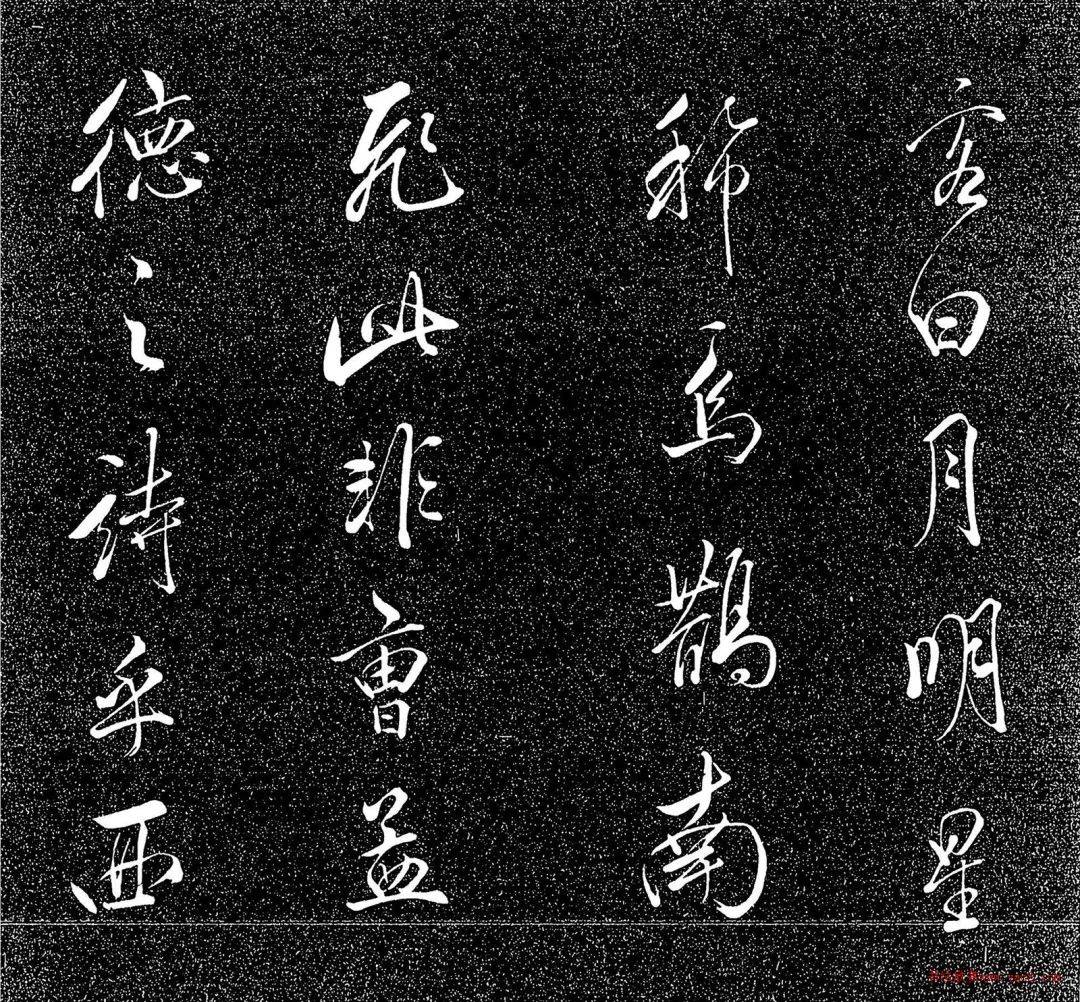 客曰月明星
稀烏鵲南
飛此非曹孟
德之詩乎西